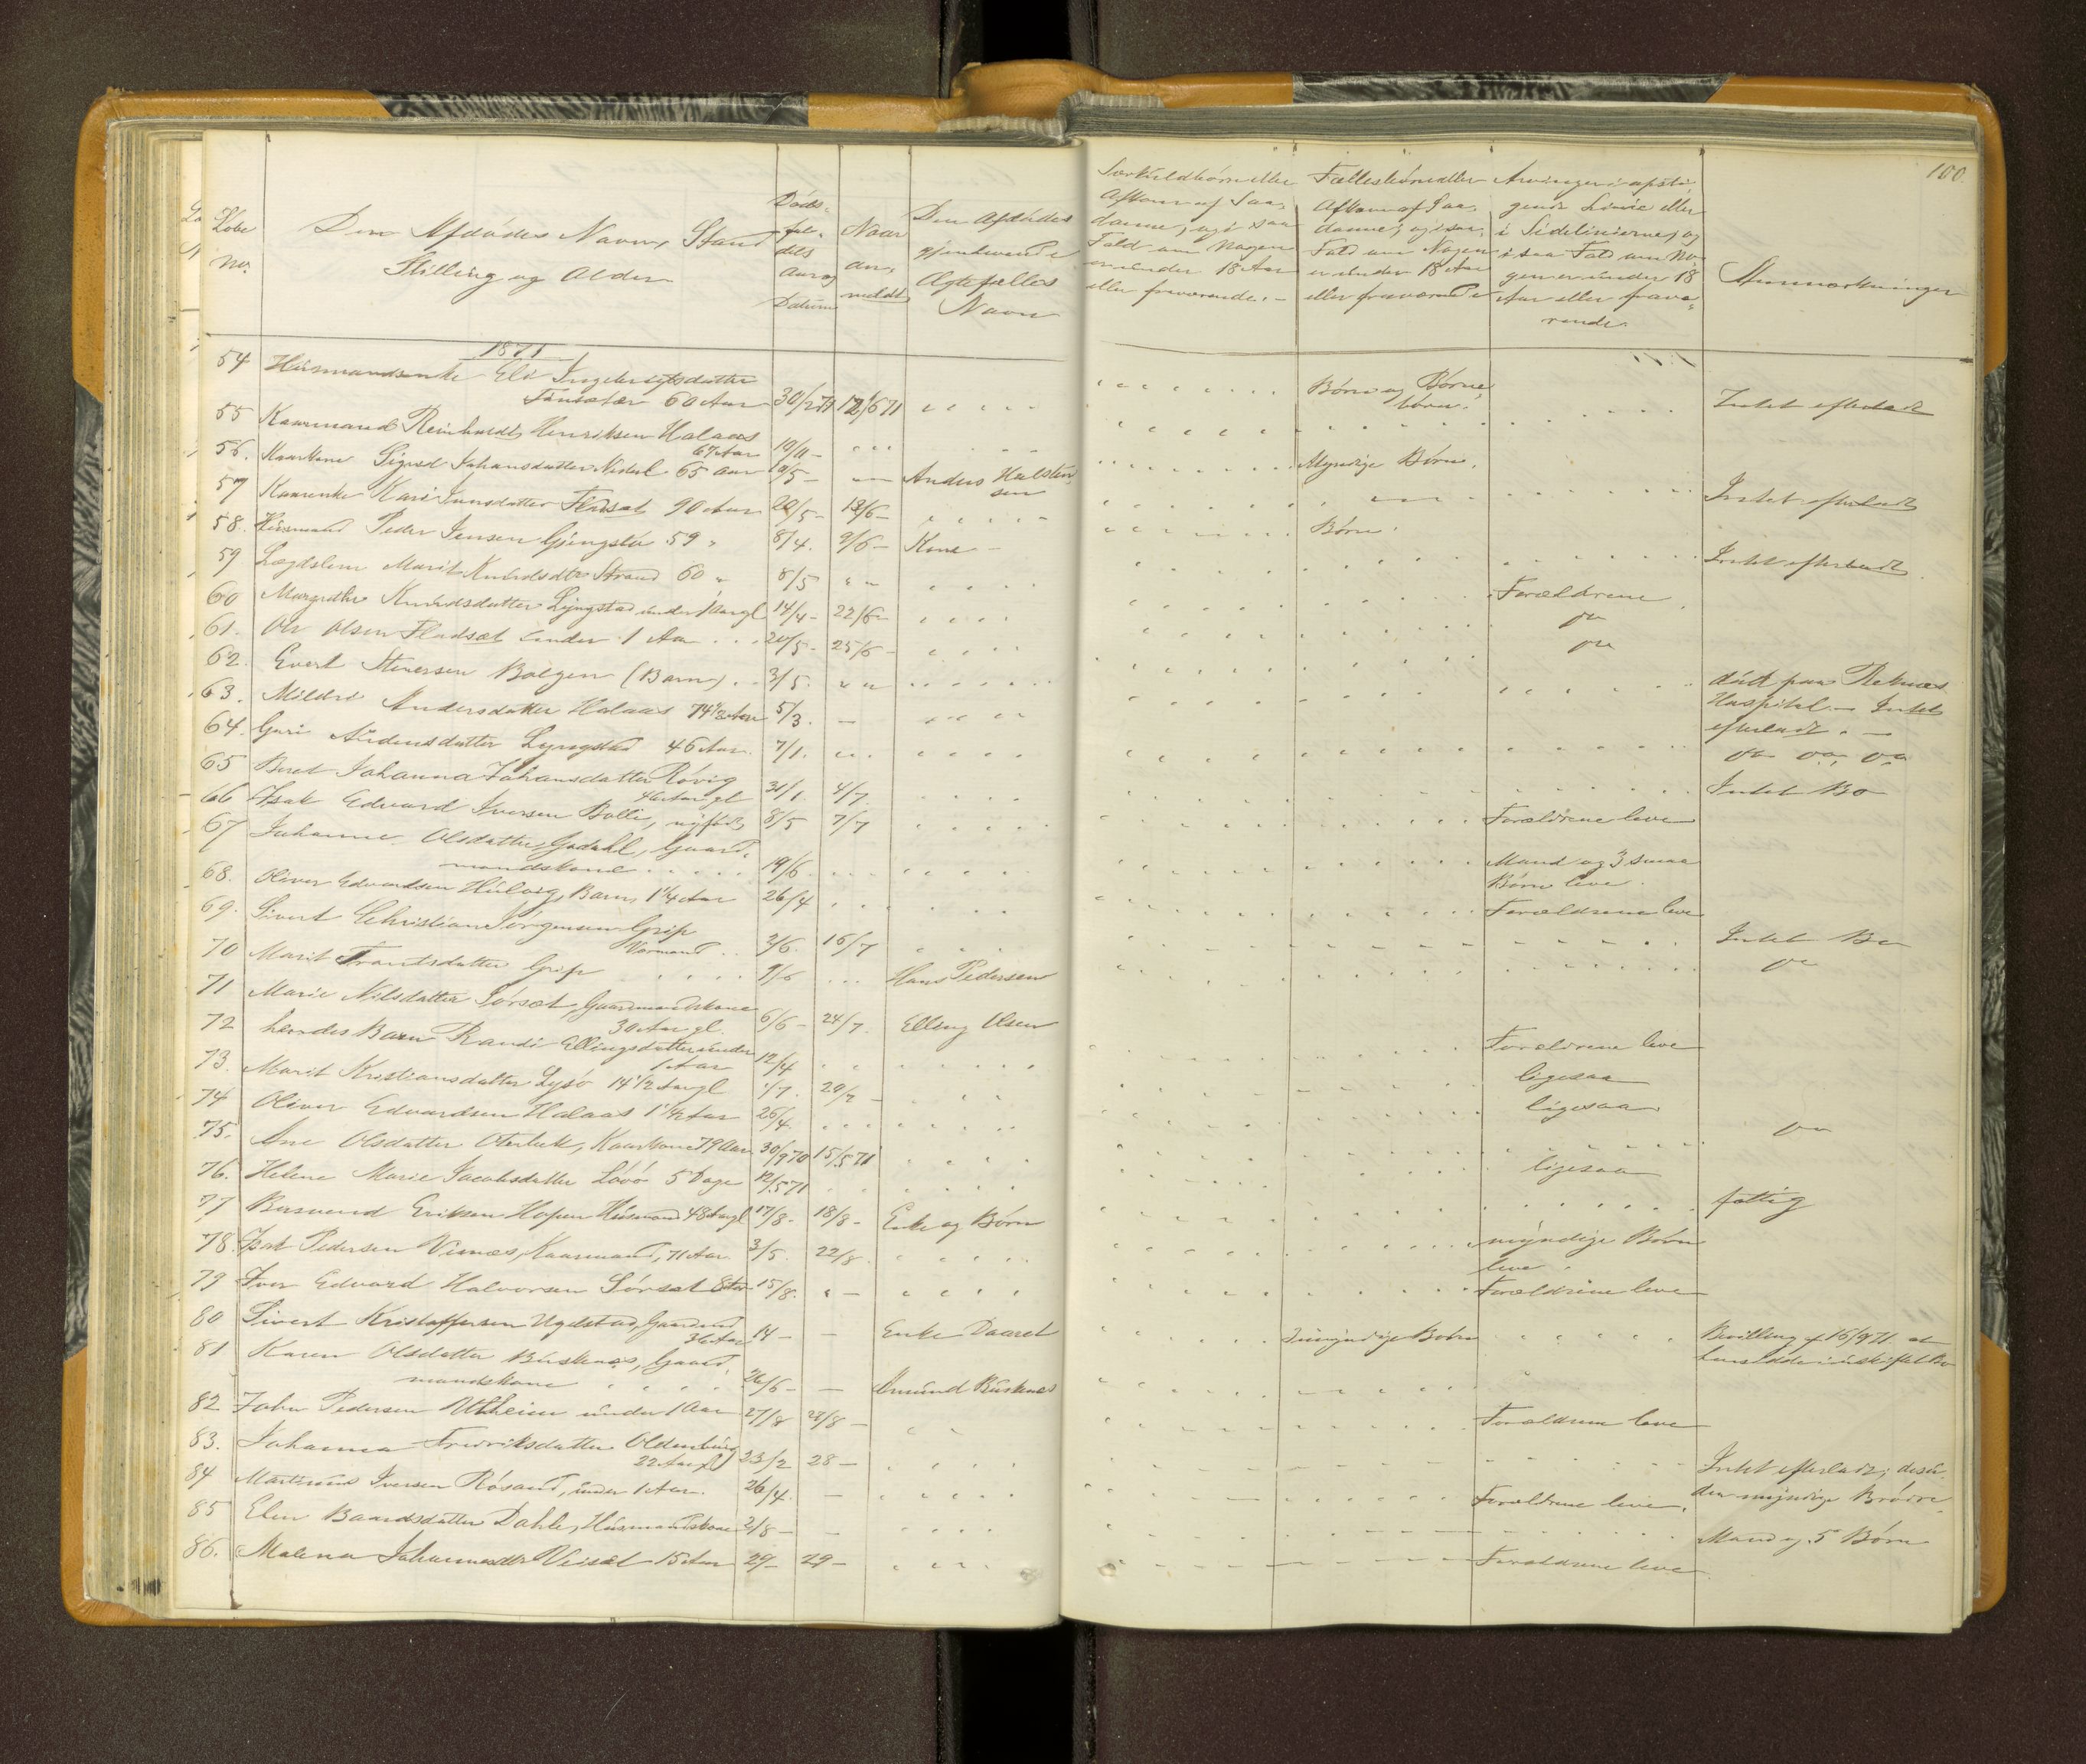 100.
Løbe
No.
Den Afdødes Navn, Stand
Stilling og Alder
Døds-
fal-
dets
Aar og
Datum
Naar
an-
meldt
Den Afdødes
gjenlevende
Ægtefælles
Navn
Særkuldbørn eller
Afkom af Saa-
danne, og i saa
Fald om Nogen
er under 18 Aar
eller fraværende.-
Fællesbørn eller
Afkom af Saa-
danne, og i saa
Fald om Nogen
er under 18 Aar
eller fraværende
Arvinger i opsti-
gende Linie eller
i Sidelinierne, og
i saa Fald om No-
gen er under 18
Aar eller fravæ-
rende.
Anmærkninger
1871
54 Huusmandsenke Eli Ingebrigtsdatter
60 Aar 30/2 71 12/6 71 Børn og Børne-
børn. Intet efterladt
55 Kaarmand Reinhardt Henriksen Halaas
67 Aar 19/11 -
56. Kaarkone Sigrid Johansdatter 65 Aar 19/5 - Anders Halsten-
sen Myndige Børn.
57 Kaarenke Kari Jonsdatter Fladset 90 Aar 20/5 - 13/6 - Intet efterladt
58. Huusmand Peder Jensen Gjengstø 59 " 8/4. 9/6 - Kone - Børn.
59 Lægdslem Marit Knudsdtr Strand 60 " 8/5 " " Intet efterladt.
60 Margrethe Knudsdatter Lyngstad under 1 Aar gl 14/4 - 22/6 Forældrene
61. Ole Olsen Fladset under 1 Aar 20/5 - 25/6 - do
62. Evert Steversen Bolgen (Barn) 3/5. " " do
63. Mildri Andersdatter Halaas 74 1/2 Aar 5/3. - død paa Reknæs
Hospital. - Intet
efterladt. -
64. Guri Audensdatter Lyngstad 46 Aar. 7/1. do do do
65 Beret Johanna Johansdatter Røvig
46 Aar gl 31/1. 4/7 Intet Bo
66 Isak Edvard Iversen Bolli, nyfødt 8/5 7/7 Forældrene leve
67 Johanne Olsdatter Gudahl, Gaard-
mandskone 19/6 Mand og 3 smaa
Børn leve.
68. Oliver Edvardsen Hulvig, Barn 1 1/4 Aar 26/4 Forældrene leve
69. Sivert Christian Jørgensen Grip
3/6. 16/7 Intet Bo
70 Marit Frantsdatter Grip 9/6 Hans Pedersen do
71 Marie Nilsdatter Sørset, Gaardmandskone
30 Aar gl. 6/6 - 24/7. Elling Olsen
72 hendes Barn Randi Ellingsdatter under
1 Aar 12/4 Forældrene leve
73. Marit Kristiansdatter Lysø 14 1/2 Aar gl 1/7. 20/7 - ligesaa
74 Oliver Edvardsen Halaas 1 1/4 Aar 26/4. ligesaa
75. Ane Olsdatter Oterbek, Kaarkone 79 Aar 30/9 70 15/5 71 do
76. Helene Marie Jacobsdatter Løvø 5 Dage 12/5 71 ligesaa
77 Eriksen Hopen Husmand 48 Aar gl 17/8 - 18/8 - Enke og Børn fattig
78. Isak Pedersen Visnæs, Kaarmand, 71 Aar 3/5. 22/8. myndige Børn
leve.
79 Iver Edvard Halvorsen Sørset 8 Aar 15/8. " - Forældrene leve
80 Sivert Kristoffersen Ugelstad, Gaardmd
36 Aar 14 - - Enke Daaret Umyndige Børn Bevilling af 16/9 71 at
hensidde i uskiftet Bo
81 Karen Olsdatter Buskenæs, Gaard-
mandskone 26/6 - - Amund Buskenæs
82 John Pedersen Utheim under 1 Aar 27/8 28/8 - Forældrene leve
83. Johanna Fredriksdatter Oldenburg
22 Aar gl 23/2 28 - Intet efterladt; desu-
den myndige Brødre
84 Martinus Iversen Røsand, under 1 Aar. 26/4. - Forældrene leve.
85 Elen Baardsdatter Dahle, Husmandskone 2/8 - - Mand og 5 Børn
86. Malena Johannesdtr Veiset 15 Aar 29 - 29 - Forældrene leve.